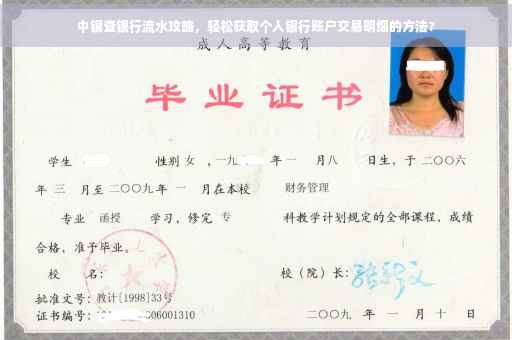 中银查银行流水攻略，轻松获取个人银行账户交易明细的方法？
成人高等教育
毕业证书
学生 性别 女 ，一九 年 一 月 八 日生，于 二〇〇六
年 三 月至 二〇〇九 年 一 月在本校 财务管理
专业 函授 学习，修完 专 科教学计划规定的全部课程，成绩
合格，准予毕业。
校 名： 校（院）长：
批准文号：教计[1998]33号
证书编号： 06001310 二〇〇九 年 一 月 十 日